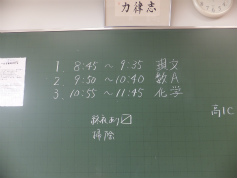 力律志
1. 8:45 ～ 9:35 現文
2. 9:50 ～ 10:40 数A
3. 10:55 ～ 11:45 化学
高1C
掃除